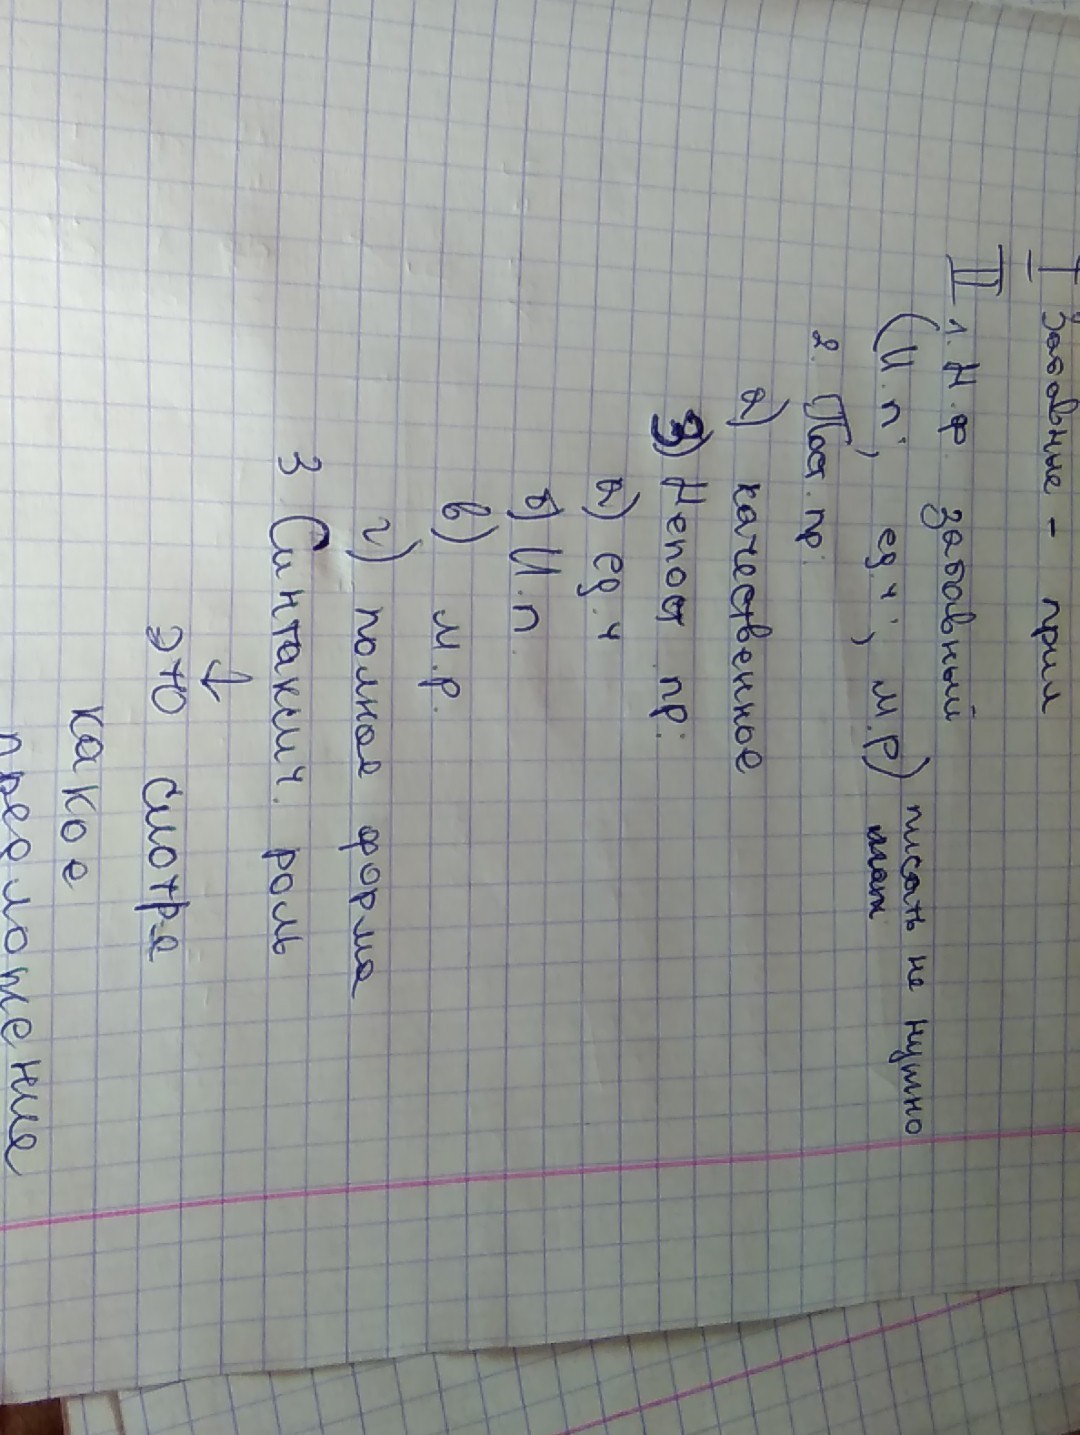 I Забавные - прил
II 1. Н.ф. забавный
(И.п, ед.ч, м.р) писать не нужно
2. Пост. пр:
а) качественные
3) Непост пр:
а) ед.ч
б) И.п
в) м.р.
г) полная форма
3 Синтаксич. роль
↓
это смотря
какое
предложение